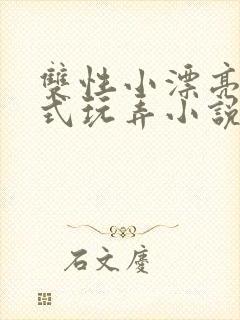 雙性小漂亮
式玩弄小說
石文慶